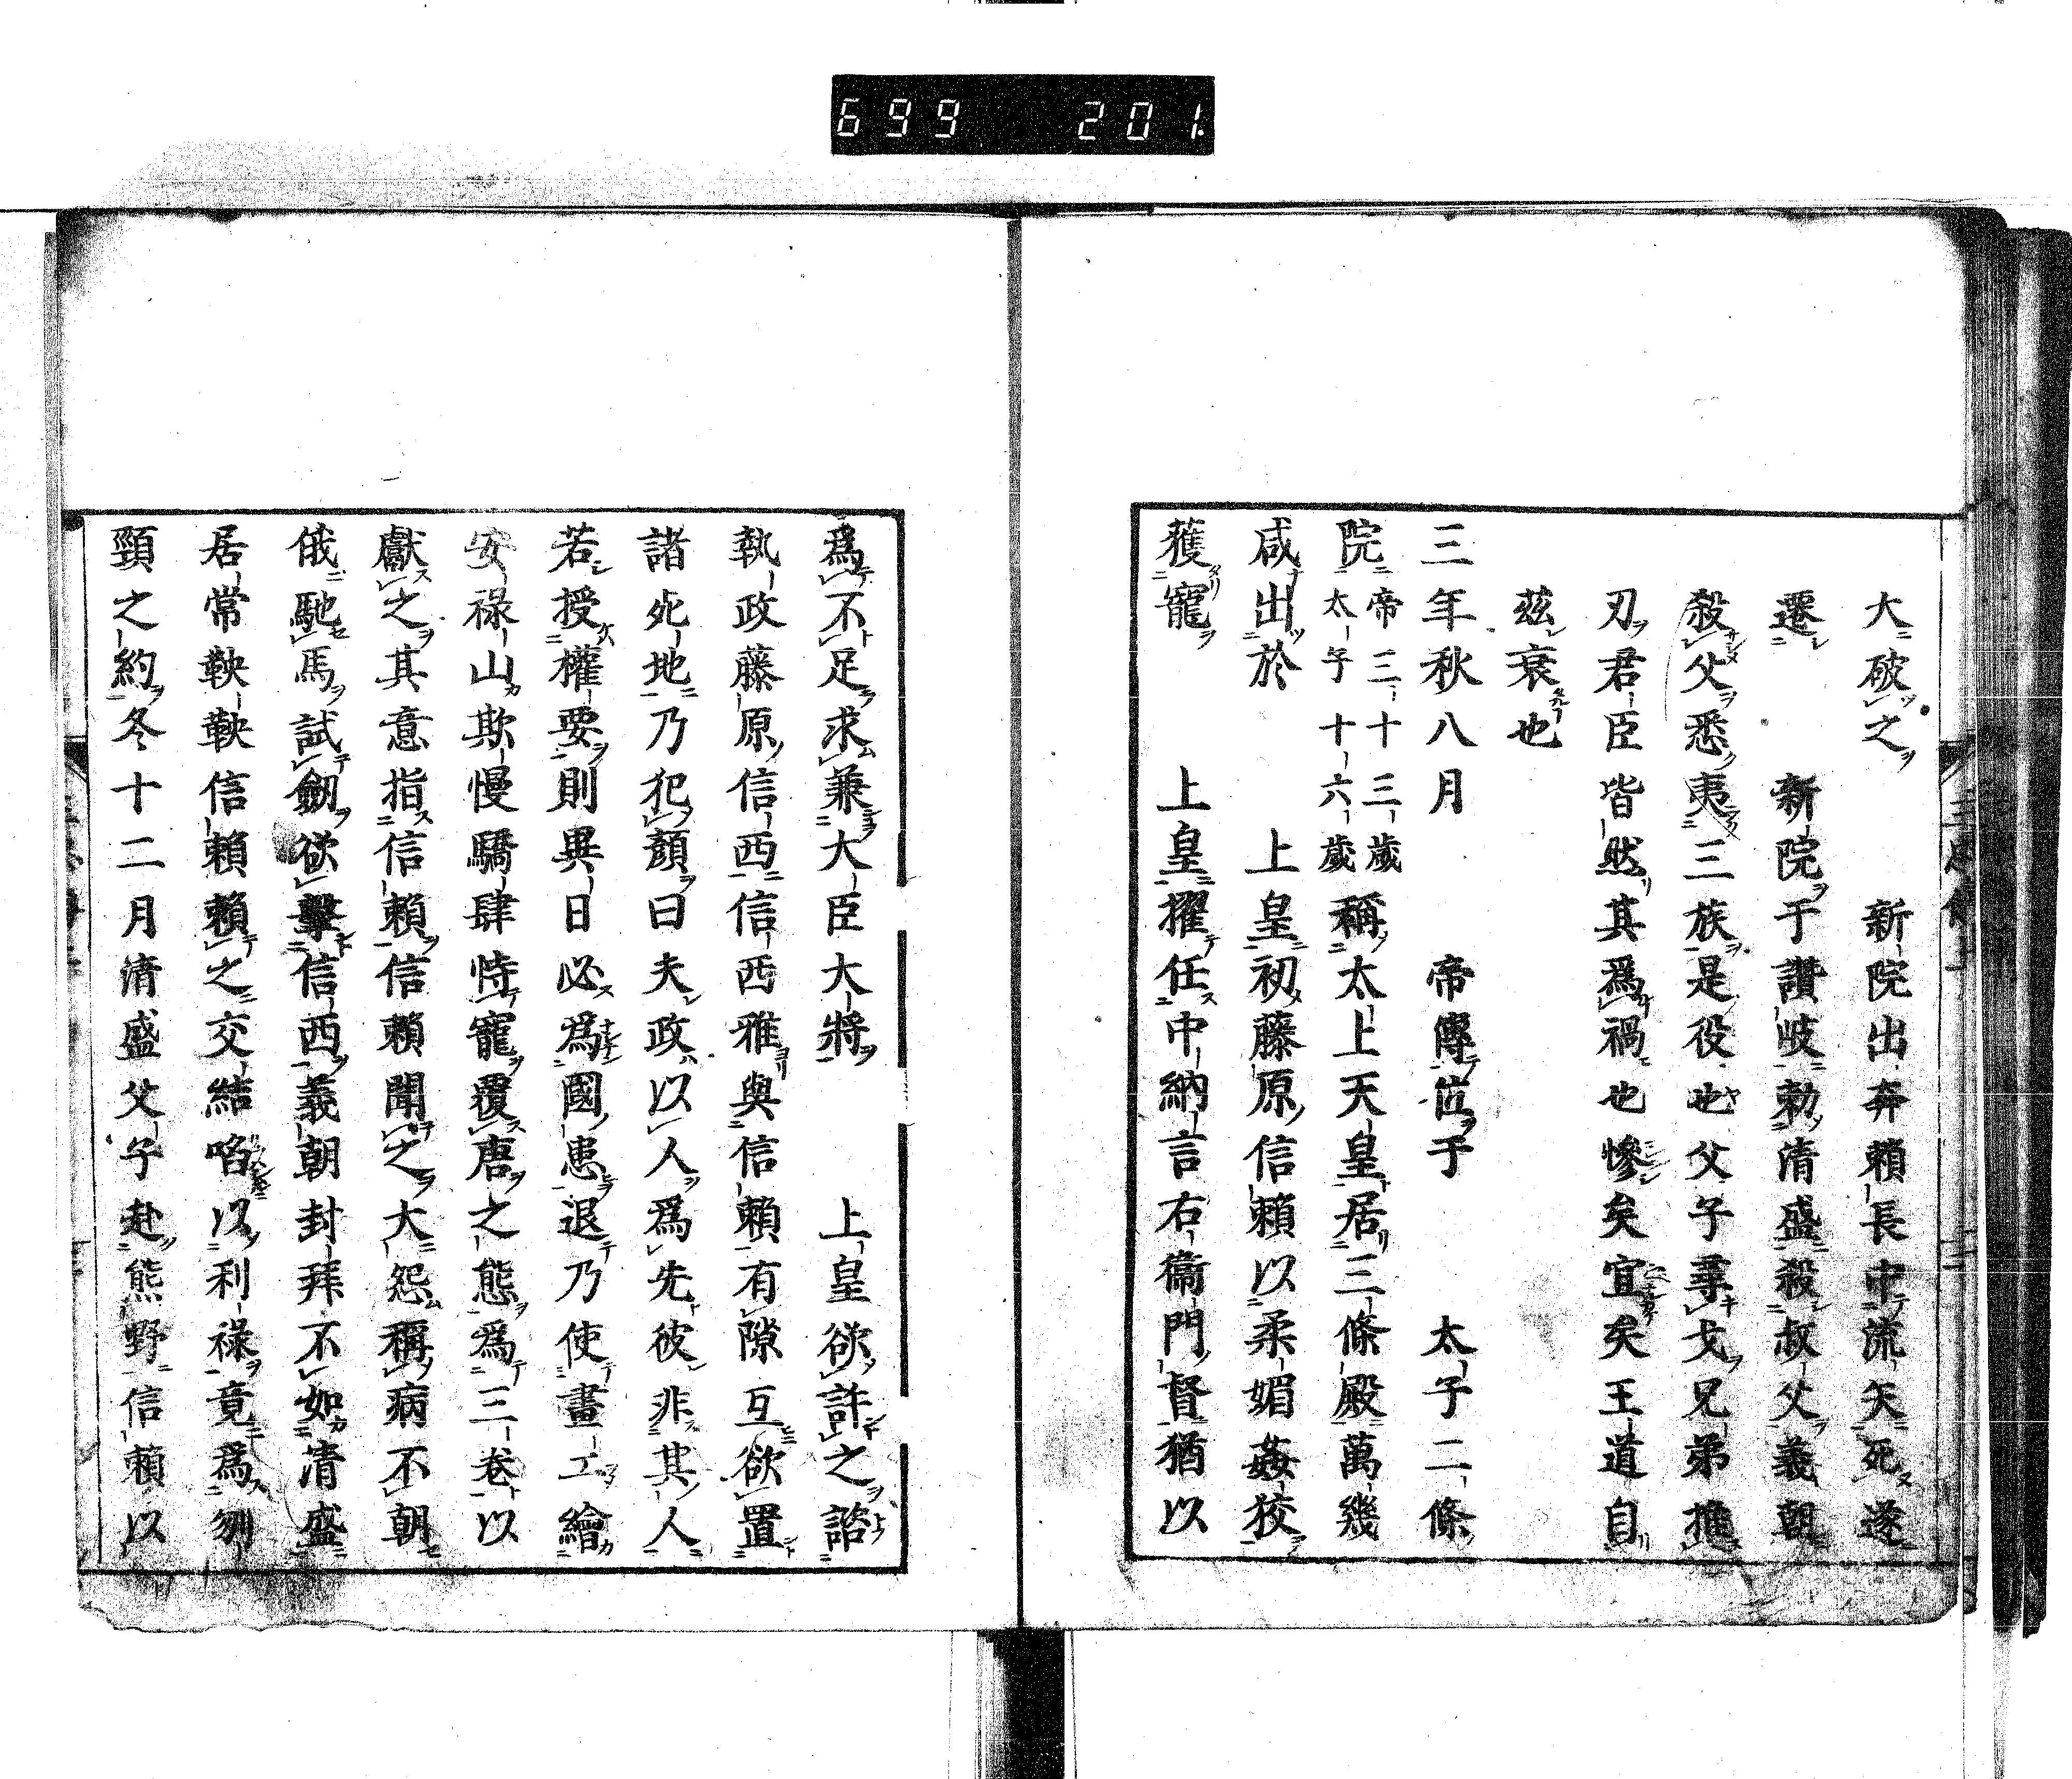 699 201
大破之 新院出奔賴長中流矢死遂
遷 新院于讚岐勅清盛殺叔父義朝
殺父悉夷三族是役也父子尋戈兄弟推
刃君臣皆然其爲禍也慘矣宜矣王道自
茲衰也
三年秋八月 帝傳位于 太子二條
院帝三十三歲太子十六歲稱太上天皇居三條殿萬幾
咸出於 上皇初藤原信賴以柔媚姦狡
獲寵 上皇擢任中納言右衞門督猶以
爲不足求兼大臣大將 上皇欲許之諮
執政藤原信西信西雅與信賴有隙互欲置
諸死地乃犯顏曰夫政以人爲先彼非其人
若授權要則異日必爲國患退乃使畫工繪
安祿山欺慢驕肆恃寵覆唐之態爲三卷以
獻之其意指信賴信賴聞之大怨稱病不朝
俄馳馬試劒欲擊信西義朝封拜不如清盛
居常鞅鞅信賴賴之交結啗以利祿竟爲刎
頸之約冬十二月清盛父子赴熊野信賴以